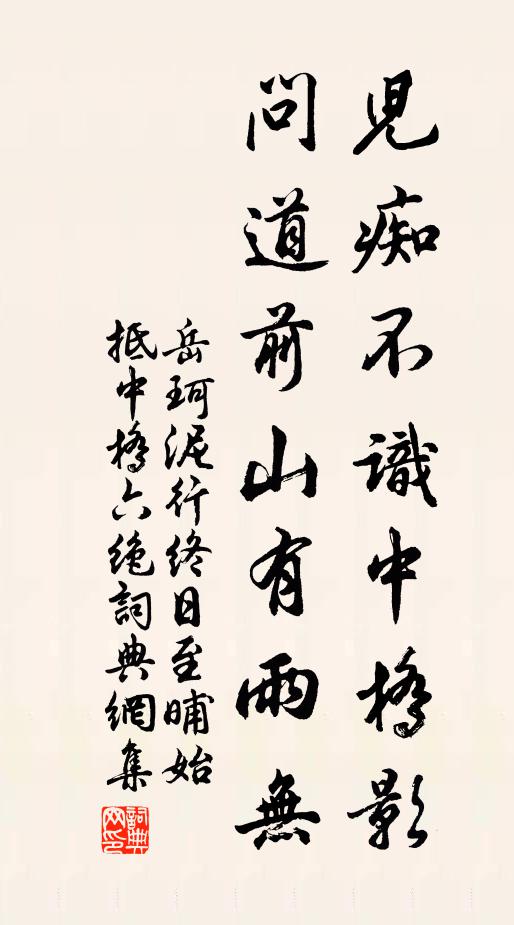 児痴不識中橋影
問道前山有雨無
岳珂泥行終日至晡始
抵中橋六絶詞典網集
詞典网印